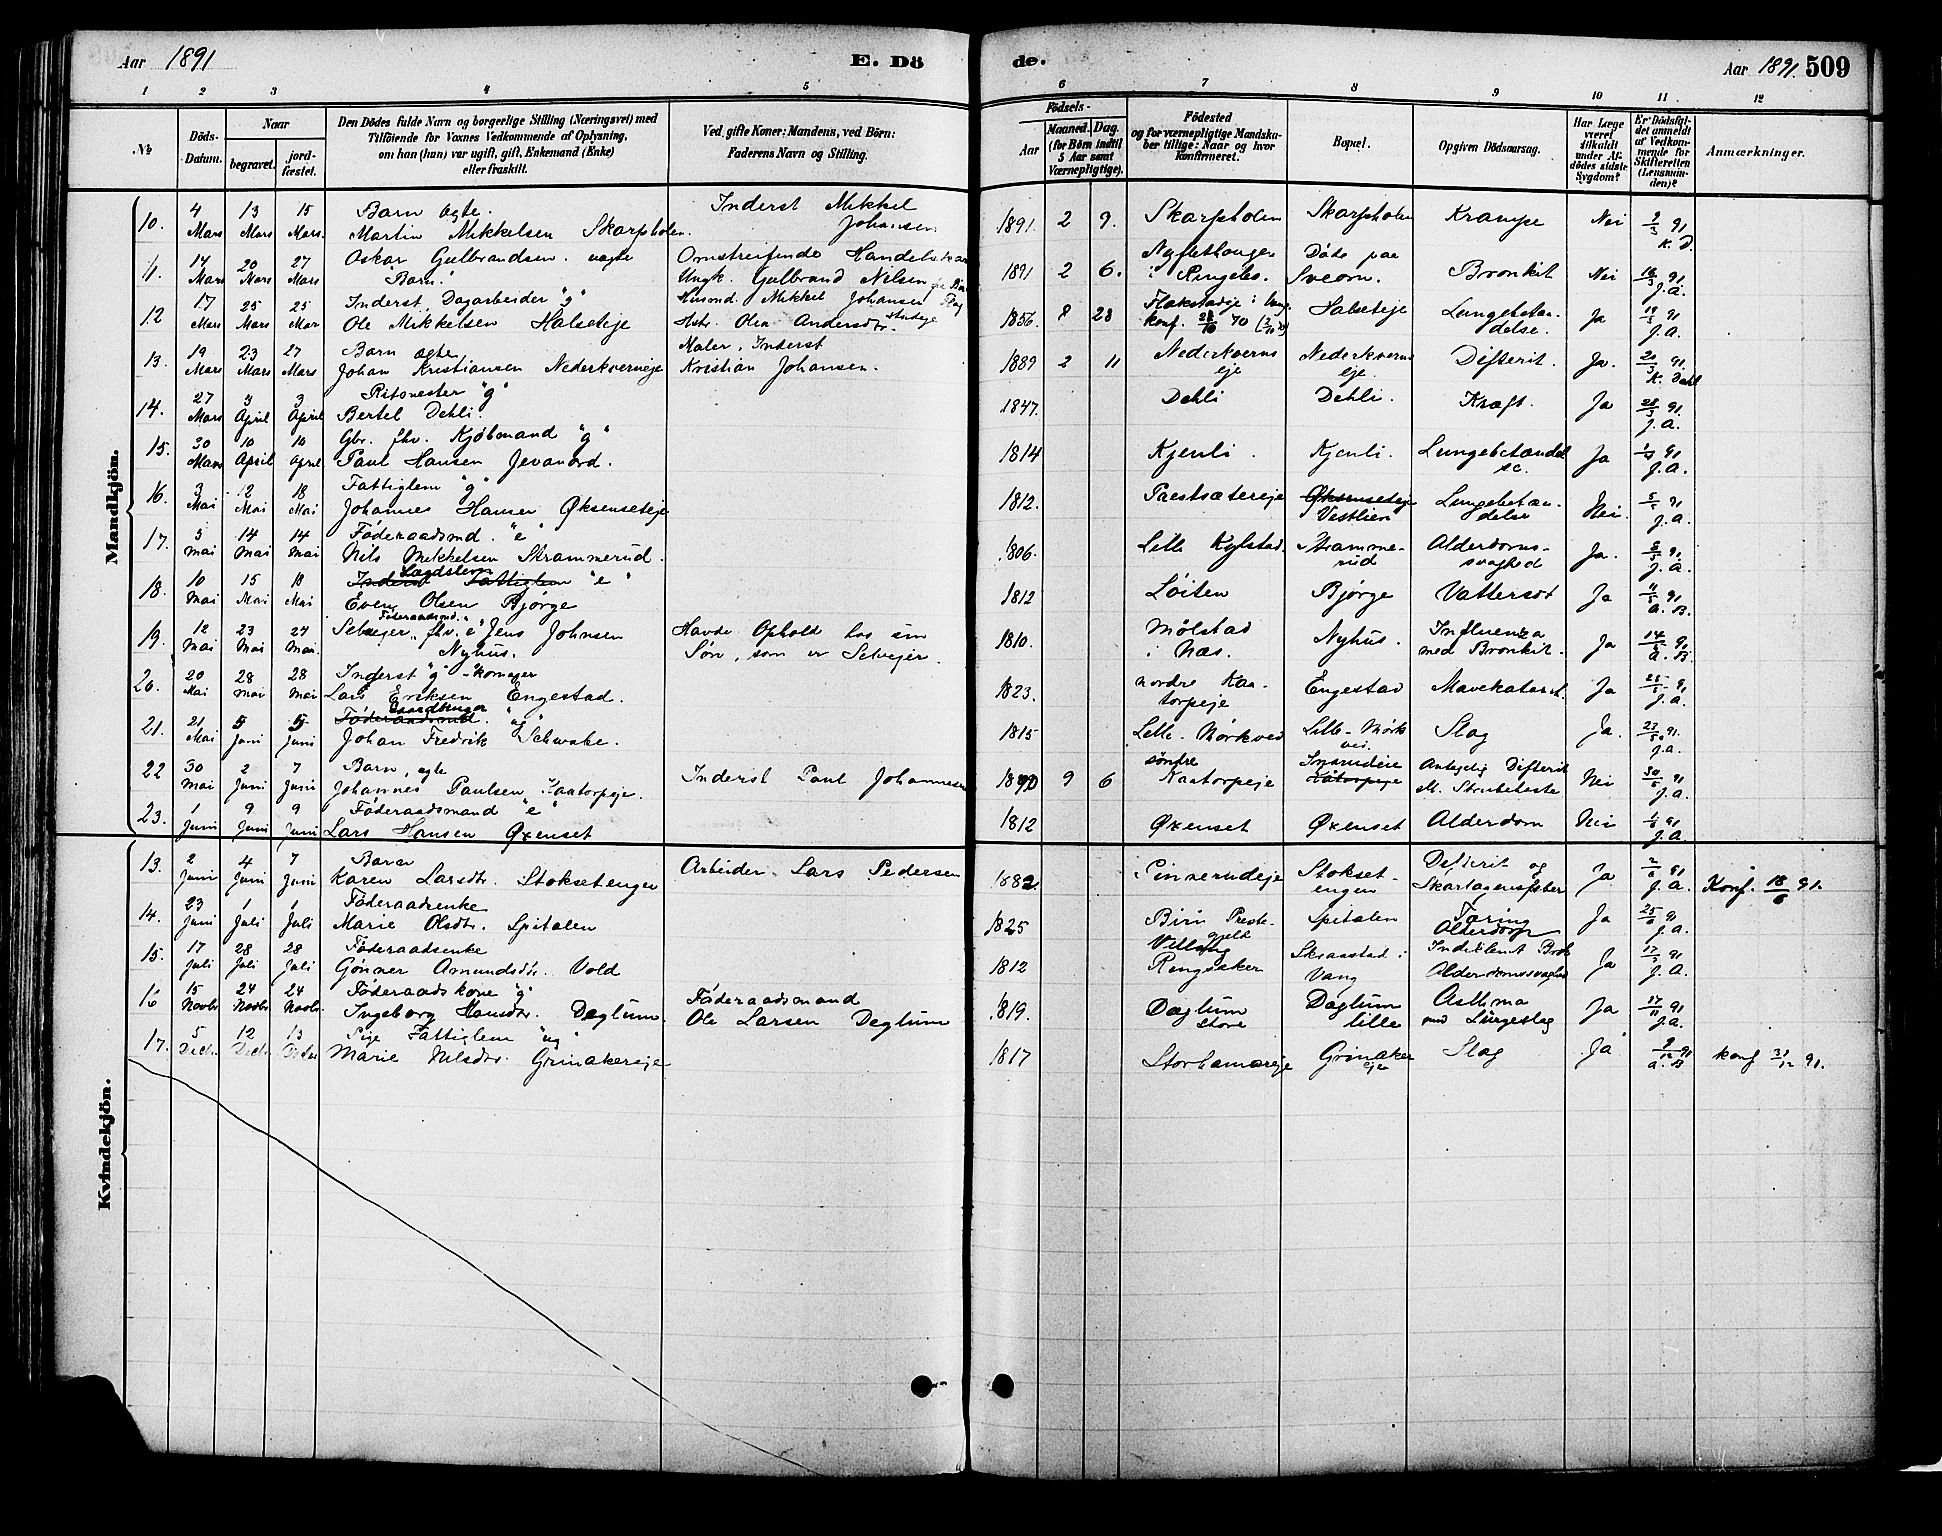 Aar 1891
E. Dö
de.
Aar 1891. 509
1 2 3 4 5 6 7 8 9 10 11 12
№
Döds-Datum.
Naar
begravet.
jordfæstet.
Den Dödes fulde Navn og borgerlige Stilling (Næringsvei) med Tilföiende for Voxnes Vedkommende af Oplysning, om han (han) var ugift, gift, Enkemand (Enke) eller fraskilt.
Ved gifte Koner: Mandens, ved Börn: Faderens Navn og Stilling.
Födsels-
Aar
Maaned. Dag.
(for Börn indtil 5 Aar samt Værnepligtige).
Födested og for værnepligtige Mandskaber tillige: Naar og hvor konfirmeret.
Bopæl.
Opgiven Dödsaarsag.
Har Læge været tilkaldt under Afdödes sidste Sygdom?
Er Dödsfaldet anmeldt af Vedkommende for Skifteretten (Lensmanden)?
Anmærkninger.
Mandkjön.
10. 4 Mars 13 Mars 15 Mars. Barn ægte. Martin Mikkelsen Skarpholen. Inderst Mikkel Johansen 1891. 2 9. Skarpholen Skarpholen Krampe Nei 9/3 91 K. D.
11. 14 Mars 20 Mars 27 Mars Oskar Gulbrandsen. uægte "Barn". Omstreifende Ungk. Gulbrand Nilsen 1891 2 6. i Ringebo. Døde paa Sveom. Bronkit Nei 91. J. A.
12 17 Mars 25 Mars 25 Mar Inderst, Dagarbeider "g" Ole Mikkelsen Halseteje Husmd. Mikkel Johansen Hstr. Olea Andersdr. 1856. 8 28 konf. 70 Halseteje Lungebetændelse. Ja 19/3 91 J. A.
13. 19 Mars 23 Mars 27 Mars Barn ægte Johan Kristiansen Nederkverneje Maler, Inderst Kristian Johansen. 1889 2 11 Nederkverns eje Nederkverns eje. Difterit. Ja. 20/3 91. K. Dahl
14. 27 Mars 3 April 3 April "g" Bertel Dehli. 1847. Dehli Dehli. Kræft. Ja 28/3 91. J. A.
15. 30 Mars 10 April 10 April Gbr. fhv. Kjøbmand "g" Paul Hansen Jevanord. 1814 Kjenli. Kjenli. Lungebetændelse. Ja 91 J. A.
16. 3 Mai 12 Mai 18 Mai Fattiglem "g" Johannes Hansen Øksenseteje 1812. Paestsætereje Øksenseteje Vestlien Lungebetændelse Nei. 5/5 91. J. A.
17. 5 Mai 14 Mai 14 Mai Føderaadsmd. "e" Nils Mikkelsen Strammerud. 1806. Lille Kylstad Strammerud Alderdomssvaghed Ja. 91. J. A.
18. 10 Mai 15 Mai 18 Mai Inderst Fattiglem Lægdslem "e" Even Olsen Bjørge 1812 Løiten Bjørge Vattersot Ja 11/5 91 A. B.
19. 12 Mai 23 Mai 24 Mai. Selveger, fhv. Føderaadsmd. "e" Jens Johnsen Nyhus. Havde Ophold hos sin Søn, som er Selvejer. 1810. Mølstad i Næs. Nyhus. Influenza med Bronkit. Ja 14/5 91 A. B.
20. 20 Mai 28 Mai 28 Mai Inderst "g" Lars Eriksen Engestad. 1823. nordre Kaatorpeje Engestad Mavekatarrh. Ja 91 J. A.
21. 21 Mai 5 Juni 5 Juni Føderaadsmd. Gaardbruger "ug" Johan Fredrik Schwabe. 1815 Lille-Mørkved Lille-Mørkved. Slag Ja. 23/5 91. J. A.
22 30 Mai 2 Juni 7 Juni Barn, ægte Johannes Paulsen Kaatorpeje. Inderst Paul Johannesen 1890 9 6 søndre Kaatorpeje Kaatorpeje Antagelig Difterit M. Strubehoste Nei 30/5 91 J. A.
23. 1 Juni 9 Juni 9 Juni Føderaadsmand "e" Lars Hansen Øxenset 1812 Øxenset Øxenset Alderdom Nei 91 J. A.
Kvindekjön.
13. 2 Juni 4 Juni 7 Juni Barn Karen Larsdtr. Stoksetengen Arbeider Lars Pedersen 1882 Finnerudeje Stoksetengen Difterit og Skarlagensfeber Ja 91 J. A. Konf. 18/6 91.
14. 23 Juni 1 Juli 1 Juli Føderaadsenke Marie Olsdtr. Spitalen 1825 Biri Prestegjeld Spitalen Tæring Alderdom Ja 25/6 91 J. A.
15. 17 Juli 28 Juli 28 Juli Føderaadsenke Gønner Amundsdtr. Vold 1812 Ringsaker Skraastad i Vang Indeklemt Brok Alderdomssvaghed Ja 91 J. A.
16 15 Novbr 24 Novbr 24 Novbr. Føderaadskone "g" Ingeborg Hansdtr. Deglum Føderaadsmand Ole Larsen Deglum 1819. Dæglum store Dæglum lille Asthma med Lungeslag Ja 17/11 91 J. A.
17. 5 Decbr 12 Decbr 13 Decbr Pige Fattiglem "ug" Marie Nilsdtr. Grinakereje 1817 Storhamareje Grinaker eje Slag Ja 9/12 91 A. B konf 31/12 91.